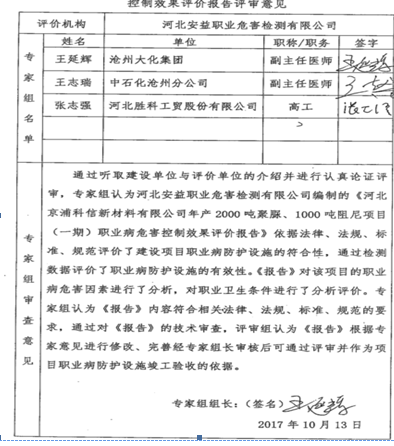 控制效果评价报告评审意见
评价机构 河北安益职业危害检测有限公司
专家组名单 姓名 单位 职称/职务 签字
王延辉 沧州大化集团 副主任医师 王延辉
王志瑞 中石化沧州分公司 副主任医师
张志强 河北胜科工贸股份有限公司 高工
专家组审查意见
通过听取建设单位与评价单位的介绍并进行认真论证评
审，专家组认为河北安益职业危害检测有限公司编制的《河北
京浦科信新材料有限公司年产2000吨聚脲、1000吨阻尼项目
（一期）职业病危害控制效果评价报告》依据法律、法规、标
准、规范评价了建设项目职业病防护设施的符合性，通过检测
数据评价了职业病防护设施的有效性。《报告》对该项目的职业
病危害因素进行了分析，对职业卫生条件进行了分析评价。专
家组认为《报告》内容符合相关法律、法规、标准、规范的要
求，通过对《报告》的技术审查，评审组认为《报告》根据专
家意见进行修改、完善经专家组长审核后可通过评审并作为项
目职业病防护设施竣工验收的依据。
专家组组长：（签名）王延辉
2017年10月13日